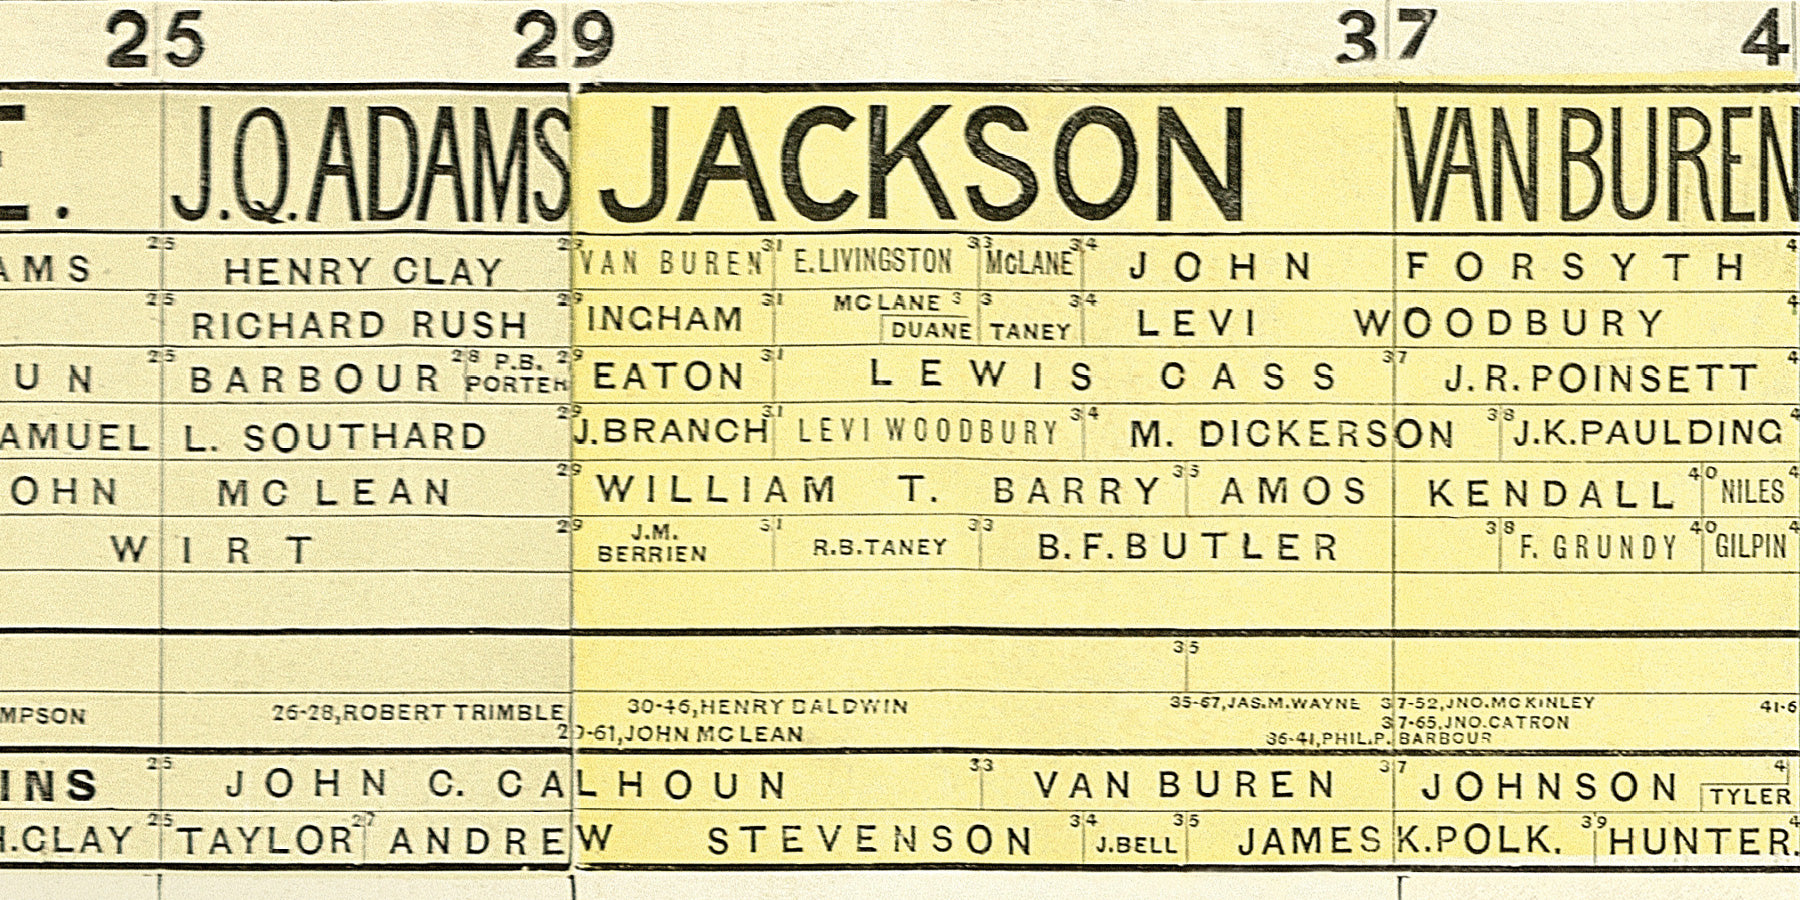 25 29 37 4
E. J.Q.ADAMS JACKSON VAN BUREN
AMS 25 HENRY CLAY 29 VAN BUREN 31 E.LIVINGSTON 33 McLANE 34 JOHN FORSYTH 4
25 RICHARD RUSH 29 INGHAM 31 MCLANE 3 3 34 LEVI WOODBURY 4
DUANE TANEY
UN 25 BARBOUR 28 P.B. PORTER 29 EATON 31 LEWIS CASS 37 J.R.POINSETT 4
AMUEL L. SOUTHARD 29 J.BRANCH 31 LEVI WOODBURY 34 M. DICKERSON 38 J.K.PAULDING 4
OHN MC LEAN 29 WILLIAM T. BARRY 35 AMOS KENDALL 40 NILES 4
WIRT 29 J.M. BERRIEN 31 R.B.TANEY 33 B.F.BUTLER 38 F. GRUNDY 40 GILPIN 4
35
MPSON 26-28,ROBERT TRIMBLE 30-46,HENRY BALDWIN 35-67,JAS.M.WAYNE 37-52,JNO.MCKINLEY 41-6
29-61,JOHN MCLEAN 37-65,JNO.CATRON
36-41,PHIL.P. BARBOUR
INS 25 JOHN C. CALHOUN 33 VAN BUREN 37 JOHNSON 4 TYLER
H.CLAY 25 TAYLOR 27 ANDREW STEVENSON 34 J.BELL 35 JAMES K.POLK. 39 HUNTER. 4